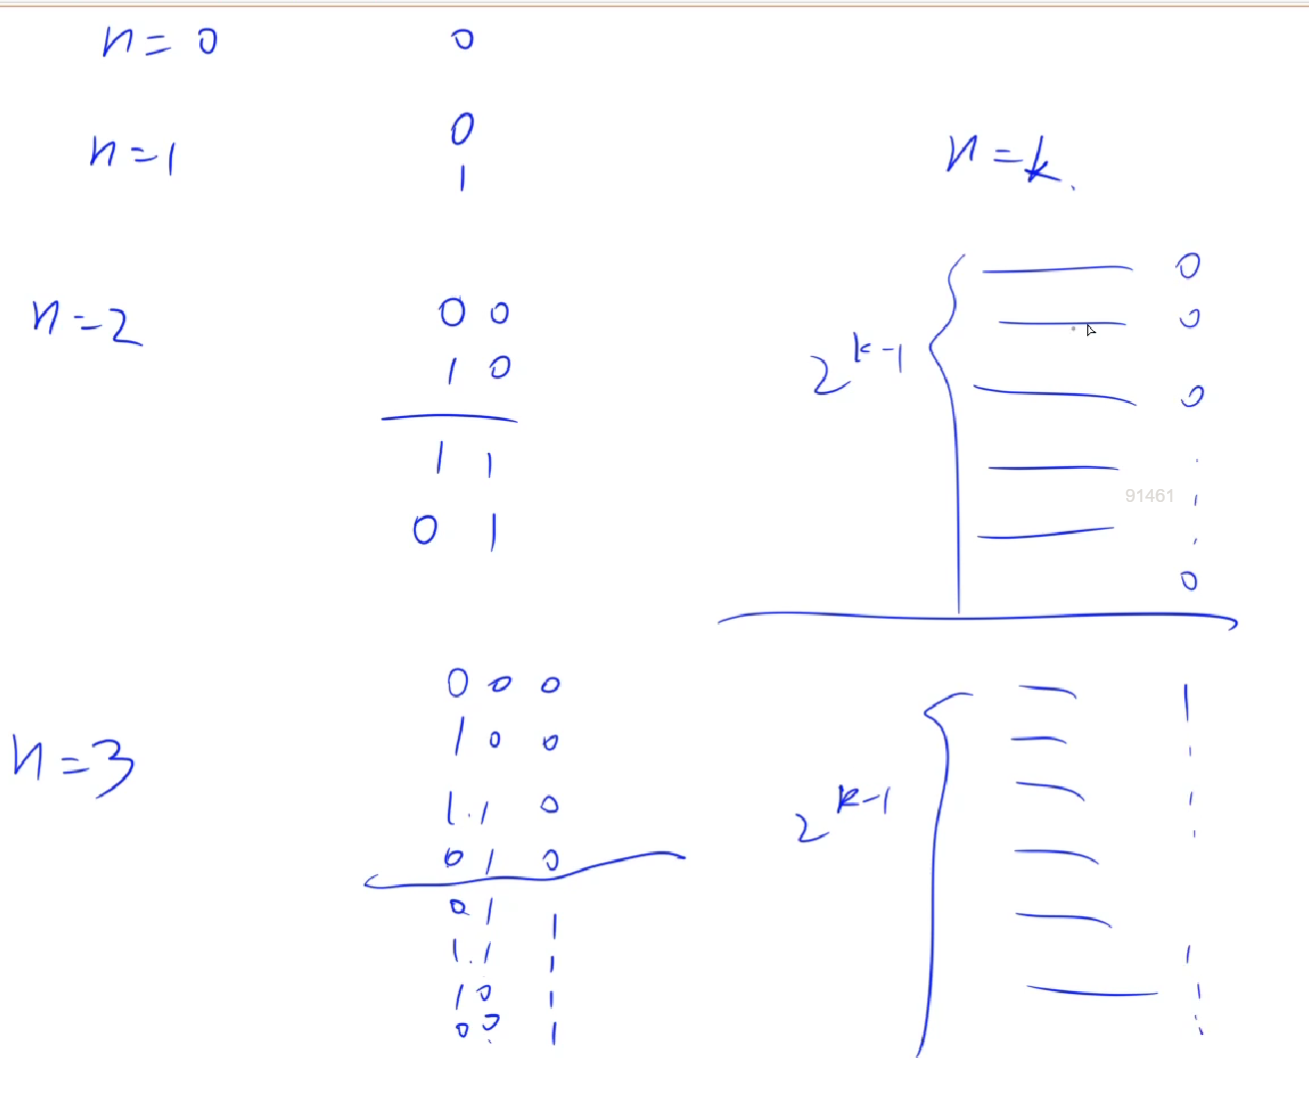 n = 0 0
n = 1 0
1
n = 2 0 0
1 0
1 1
0 1
n = 3 0 0 0
1 0 0
1 . 1 0
0 1 0
0 1 1
1 . 1 1
1 0 1
0 0 1
n = k .
2^{k-1} 0
0
0
.
91461
0
2^{k-1} 1
1